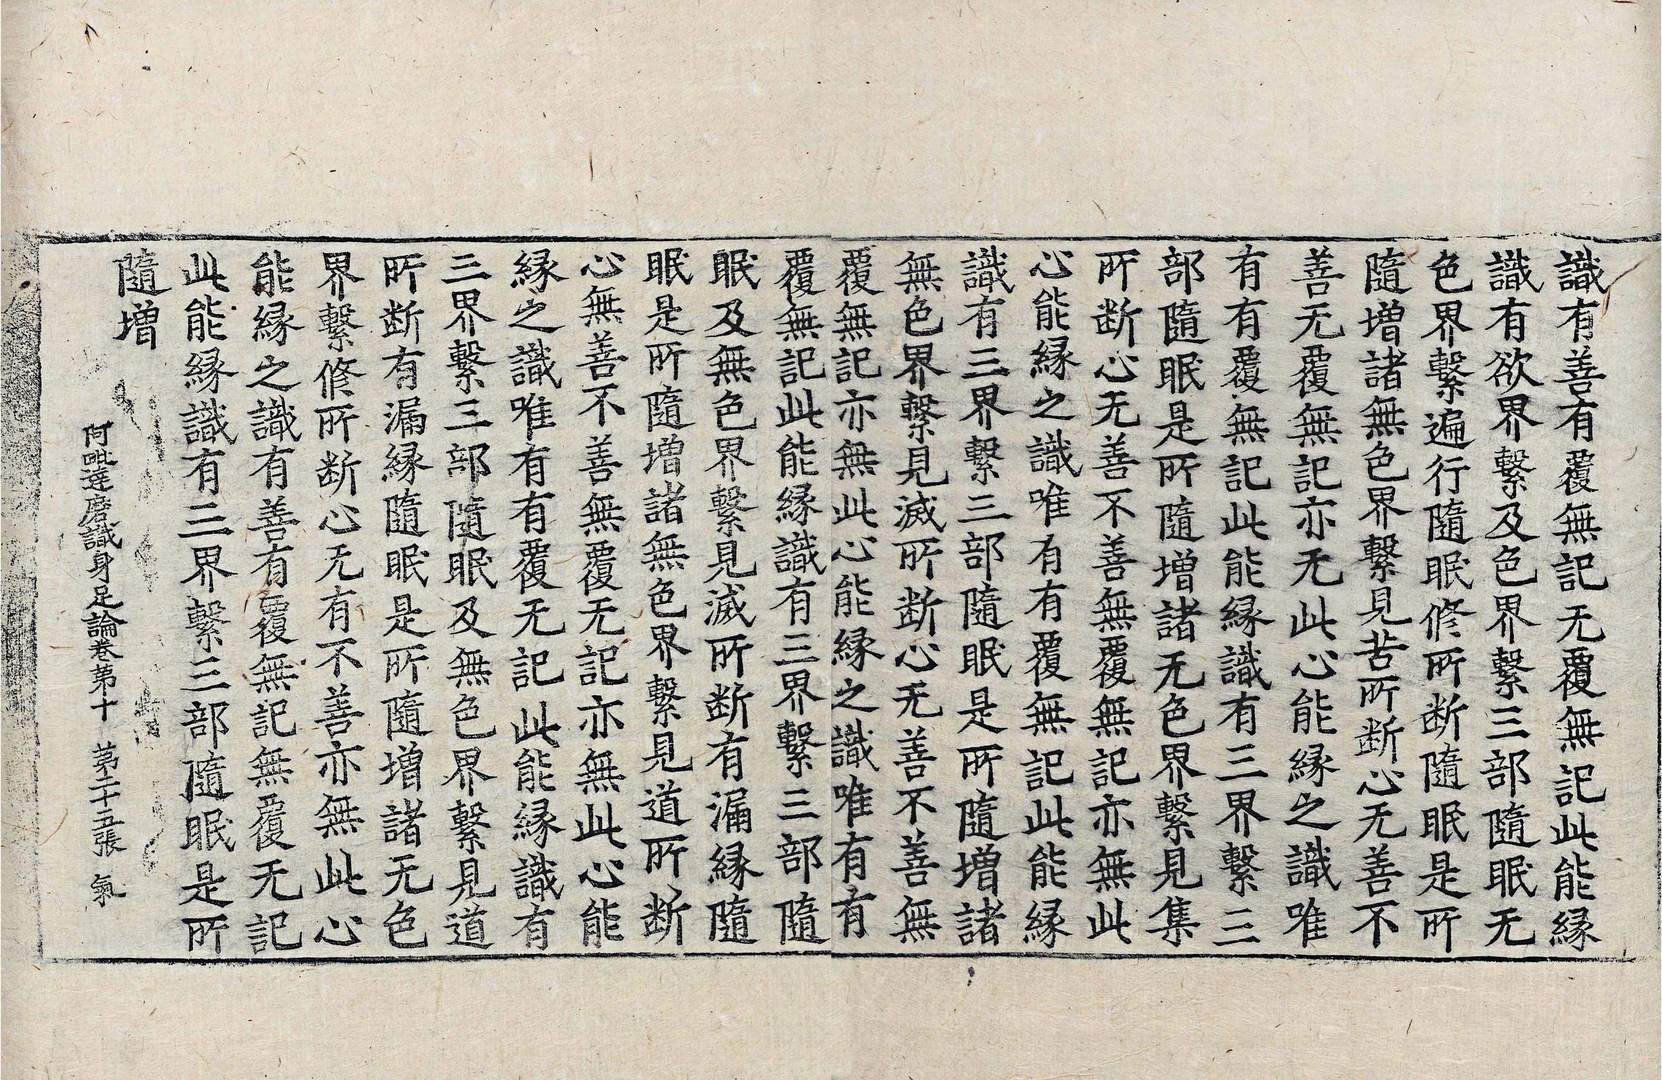 識有善有覆無記无覆無記此能緣
識有欲界繫及色界繫三部隨眠无
色界繫遍行隨眠修所断隨眠是所
隨增諸無色界繫見苦所断心无善不
善无覆無記亦无此心能緣之識唯
有有覆無記此能緣識有三界繫三
部隨眠是所隨增諸无色界繫見集
所断心无善不善無覆無記亦無此
心能緣之識唯有有覆無記此能緣
識有三界繫三部隨眠是所隨增諸
無色界繫見滅所断心无善不善無
覆無記亦無此心能緣之識唯有有
覆無記此能緣識有三界繫三部隨
眠及無色界繫見滅所断有漏緣隨
眠是所隨增諸無色界繫見道所断
心無善不善無覆无記亦無此心能
緣之識唯有有覆无記此能緣識有
三界繫三部隨眠及無色界繫見道
所断有漏緣隨眠是所隨增諸无色
界繫修所断心无有不善亦無此心
能緣之識有善有覆無記無覆无記
此能緣識有三界繫三部隨眠是所
隨增
阿毗達磨識身足論卷第十 第二十五張 氣